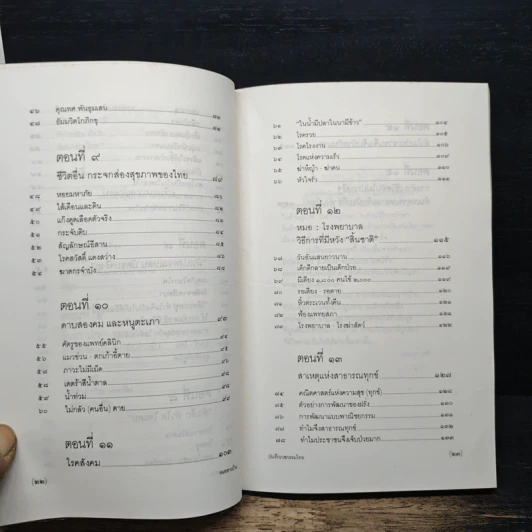 ๔๖ คุณทศ พันธุมเสน ๘๒
๔๗ ธัมมวิตโกภิกขุ
ตอนที่ ๙
ชีวิตอื่น กระจกส่องสุขภาพของไทย ๘๗
๔๘ หอยมหาภัย
๔๙ ไส้เดือนและดิน
๕๐ แก๊งดูดเลือดตัวจริง
๕๑ กระจับดิบ
๕๒ สัญลักษณ์อีสาน
๕๓ โรคสวัสดิ์ แดงสว่าง
๕๔ ฆาตกรจำบัง
ตอนที่ ๑๐
ดาบสองคม และหนูตะเภา ๙๓
๕๕ ศัตรูของแพทย์คลินิก
๕๖ แมวข่วน - ตกเก้าอี้ตาย
๕๗ ภาวะไม่มีเม็ด
๕๘ เตตร้าสีน้ำตาล
๕๙ น้ำท่วม
๖๐ ไม่กลัว (คนอื่น) ตาย
ตอนที่ ๑๑
โรคสังคม ๑๐๓
(๒๒)
๖๑ "ในน้ำมีปลาในนามีข้าว" ๑๐๔
๖๒ โรครวย ๑๐๕
๖๓ โรคโรงงาน ๑๐๖
๖๔ โรคแห่งความเร็ว ๑๐๗
๖๕ ฆ่าหญ้า - ฆ่าคน
๖๖ หัวใจรั่ว
ตอนที่ ๑๒
หมอ : โรงพยาบาล
วิธีการที่มีหวัง "สิ้นชาติ" ๑๑๕
๖๗ วันอันแสนยาวนาน
๖๘ เด็กดีกลายเป็นเด็กป่วย
๖๙ มีเตียง ๑,๐๐๐ คนไข้ ๒,๐๐๐
๗๐ รอเตียง - รอตาย
๗๑ หิ้วตระเวนทั้งคืน
๗๒ ฟ้องแพทยสภา
๗๓ โรงพยาบาล - โรงฆ่าสัตว์
ตอนที่ ๑๓
สาเหตุแห่งสาธารณทุกข์ ๑๒๗
๗๔ คณิตศาสตร์แห่งความสุข (ทุกข์) ๑๒๘
๗๕ ตัวอย่างการพัฒนาของฝรั่ง
๗๖ การพัฒนาแบบพาณิชยกรรม
๗๗ ทำไมจึงสาธารณทุกข์
๗๘ ทำไมประชาชนจึงเจ็บป่วยมาก ๑๓๓
บันทึกเวชกรรมไทย (๒๓)